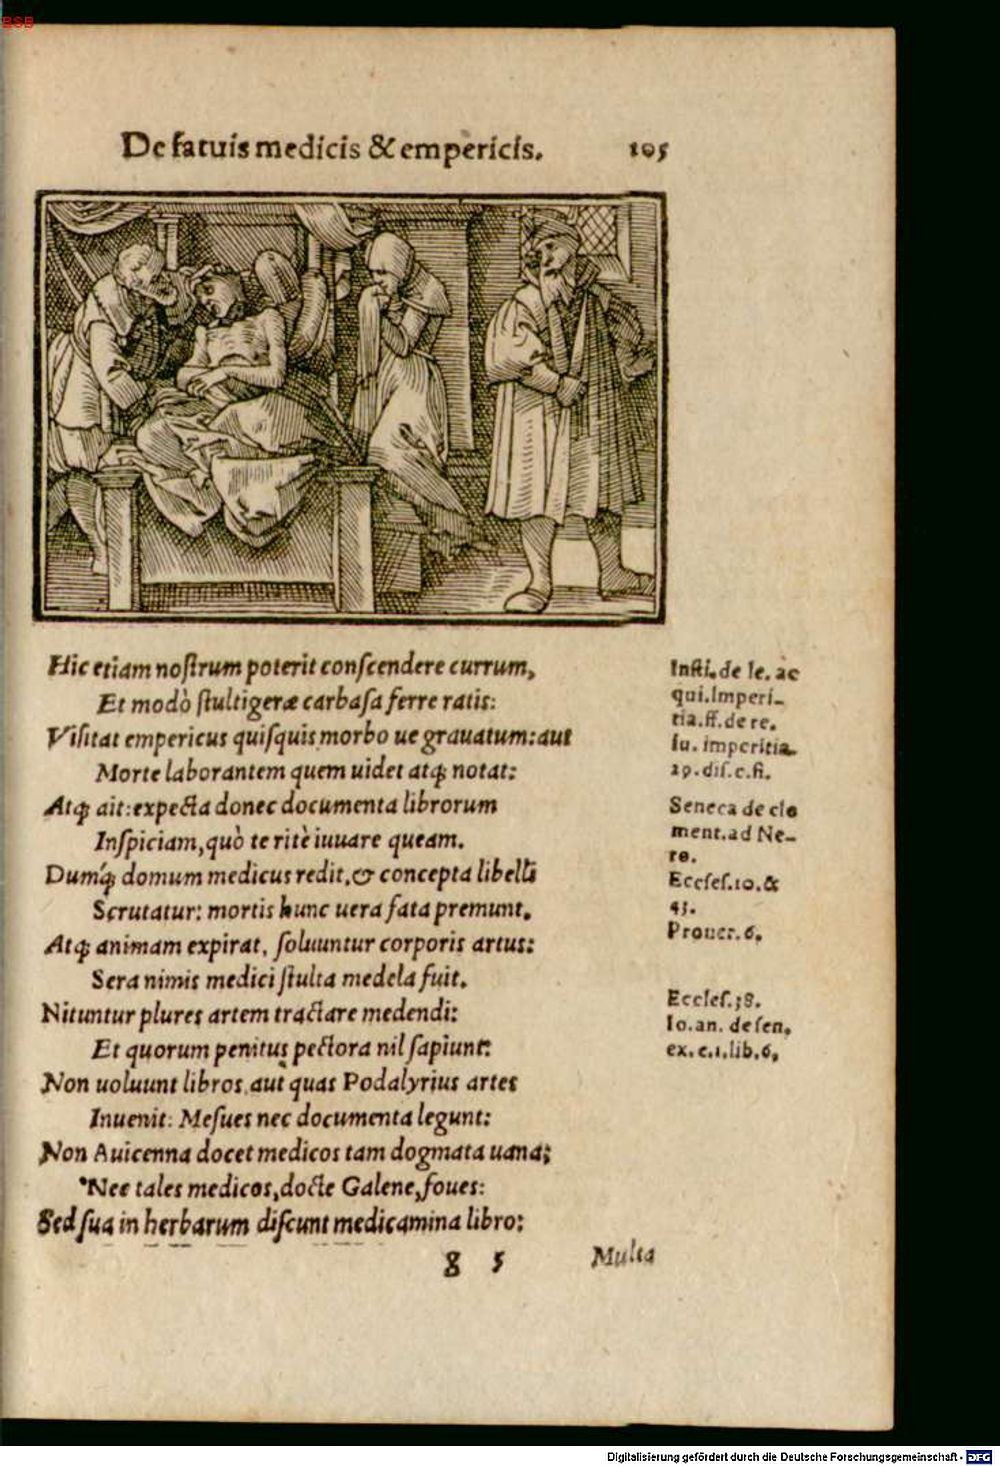 BSB
De fatuis medicis & empericis. 105
Hic etiam noſtrum poterit conſcendere currum,
Et modò ſtultigeræ carbaſa ferre ratis:
Viſitat empericus quiſquis morbo ue grauatum: aut
Morte laborantem quem uidet atq; notat:
Atq; ait: expecta donec documenta librorum
Inſpiciam, quò te ritè iuuare queam.
Dumq́; domum medicus redit, & concepta libelli
Scrutatur: mortis hunc uera fata premunt.
Atq; animam expirat, ſoluuntur corporis artus:
Sera nimis medici ſtulta medela fuit.
Nituntur plures artem tractare medendi:
Et quorum penitus pectora nil ſapiunt:
Non uoluunt libros, aut quas Podalyrius artes
Inuenit: Meſues nec documenta legunt:
Non Auicenna docet medicos tam dogmata uana;
Nec tales medicos, docte Galene, foues:
Sed ſua in herbarum diſcunt medicamina libro:
Inſti. de le. ac
qui. Imperi-
tia. ff. de re.
iu. imperitia.
29. diſ. c. fi.
Seneca de cle
ment. ad Ne-
ro.
Eccleſ. 10. &
43.
Prouer. 6.
Eccleſ. 38.
Io. an. de ſen.
ex. c. 1. lib. 6.
g 5 Multa
Digitalisierung gefördert durch die Deutsche Forschungsgemeinschaft - DFG